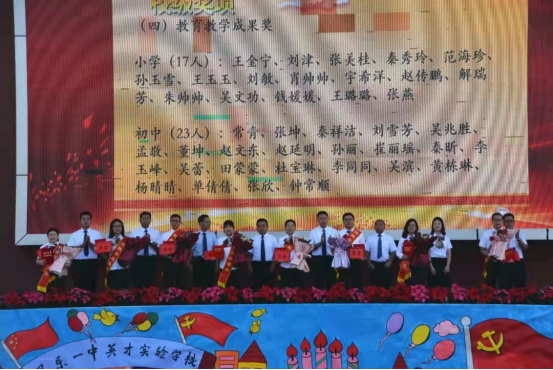 校级奖项
（四）教育教学成果奖
小学（17人）：王金宁、刘津、张美桂、秦秀玲、范海珍、
孙玉雪、王玉玉、刘敏、肖帅帅、宇希洋、赵传鹏、解瑞
芳、朱帅帅、吴文功、钱媛媛、王璐璐、张燕
初中（23人）：常青、张坤、秦祥洁、刘雪芳、吴兆胜、
孟敬、董坤、赵文东、赵延明、孙丽、崔丽瑶、秦昕、李
玉峰、吴蕾、田蒙蒙、杜宝琳、李同同、吴滨、黄栋琳、
杨晴晴、单倩倩、张欣、钟常顺
乐一中英才实验学校